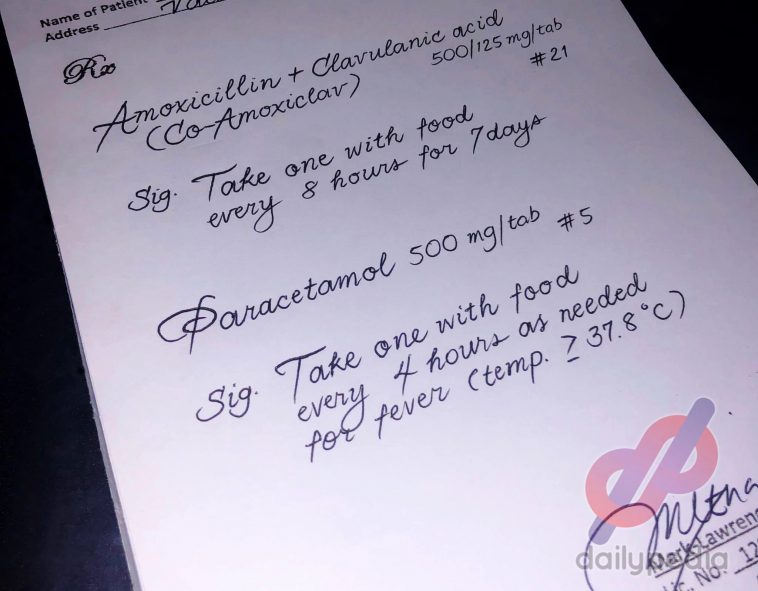 Name of Patient
Address
Rx
Amoxicillin + Clavulanic acid
(Co-Amoxiclav) 500/125 mg/tab
#21
Sig. Take one with food
every 8 hours for 7 days
Paracetamol 500 mg/tab #5
Sig. Take one with food
every 4 hours as needed
for fever (temp. ≥ 37.8°C)
dailypedia
Mark Lawrenc
Lic. No. 12